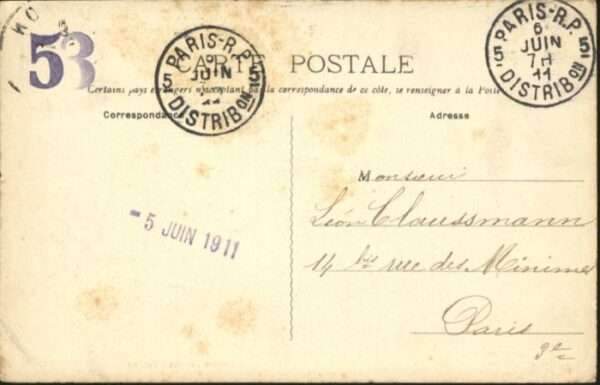 KO
53
PARIS-R.P.
6
JUIN
11
5 5
DISTRIBON
PARIS-R.P.
6
JUIN
7H
11
5 5
DISTRIBON
CARTE POSTALE
Certains pays étrangers n'acceptant pas la correspondance de ce côté, se renseigner à la Poste
Correspondance
Adresse
Monsieur
Léon Claussmann
14 bis rue des Minimes
Paris
3e
-5 JUIN 1911